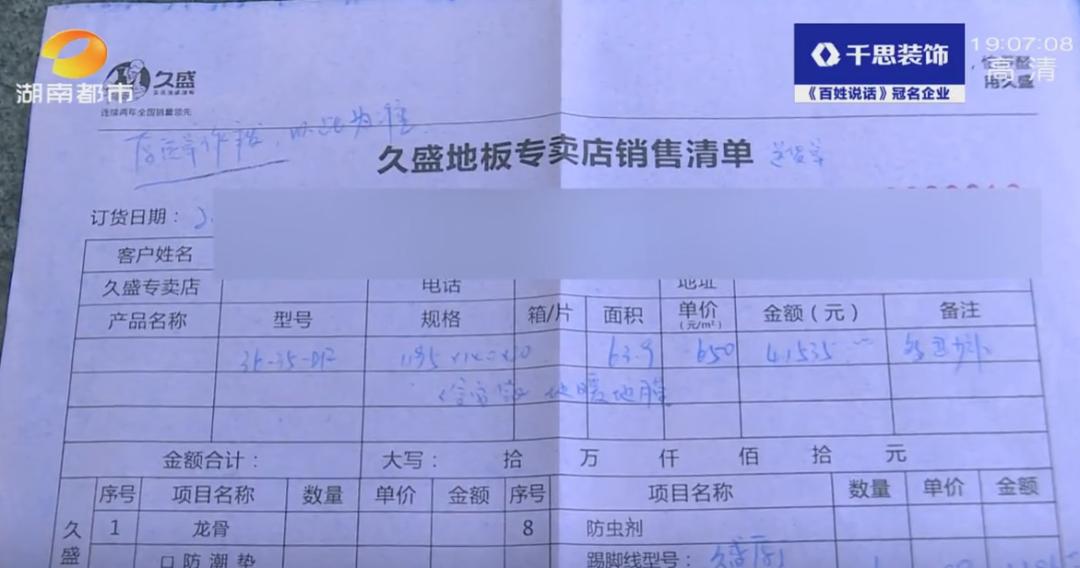 湖南都市
久盛
连续两年全国销量领先
千思装饰
《百姓说话》冠名企业
19:07:08
高清
用久盛
以此为准
久盛地板专卖店销售清单
送货单
订货日期：
客户姓名
久盛专卖店 电话 地址
产品名称 型号 规格 箱/片 面积 单价 (元/m²) 金额（元） 备注
63.9 650 41535
地暖地脂
金额合计： 大写： 拾 万 仟 佰 拾 元
序号 项目名称 数量 单价 金额 序号 项目名称 数量 单价 金额
久盛
1 龙骨 8 防虫剂
□防潮垫 踢脚线型号：